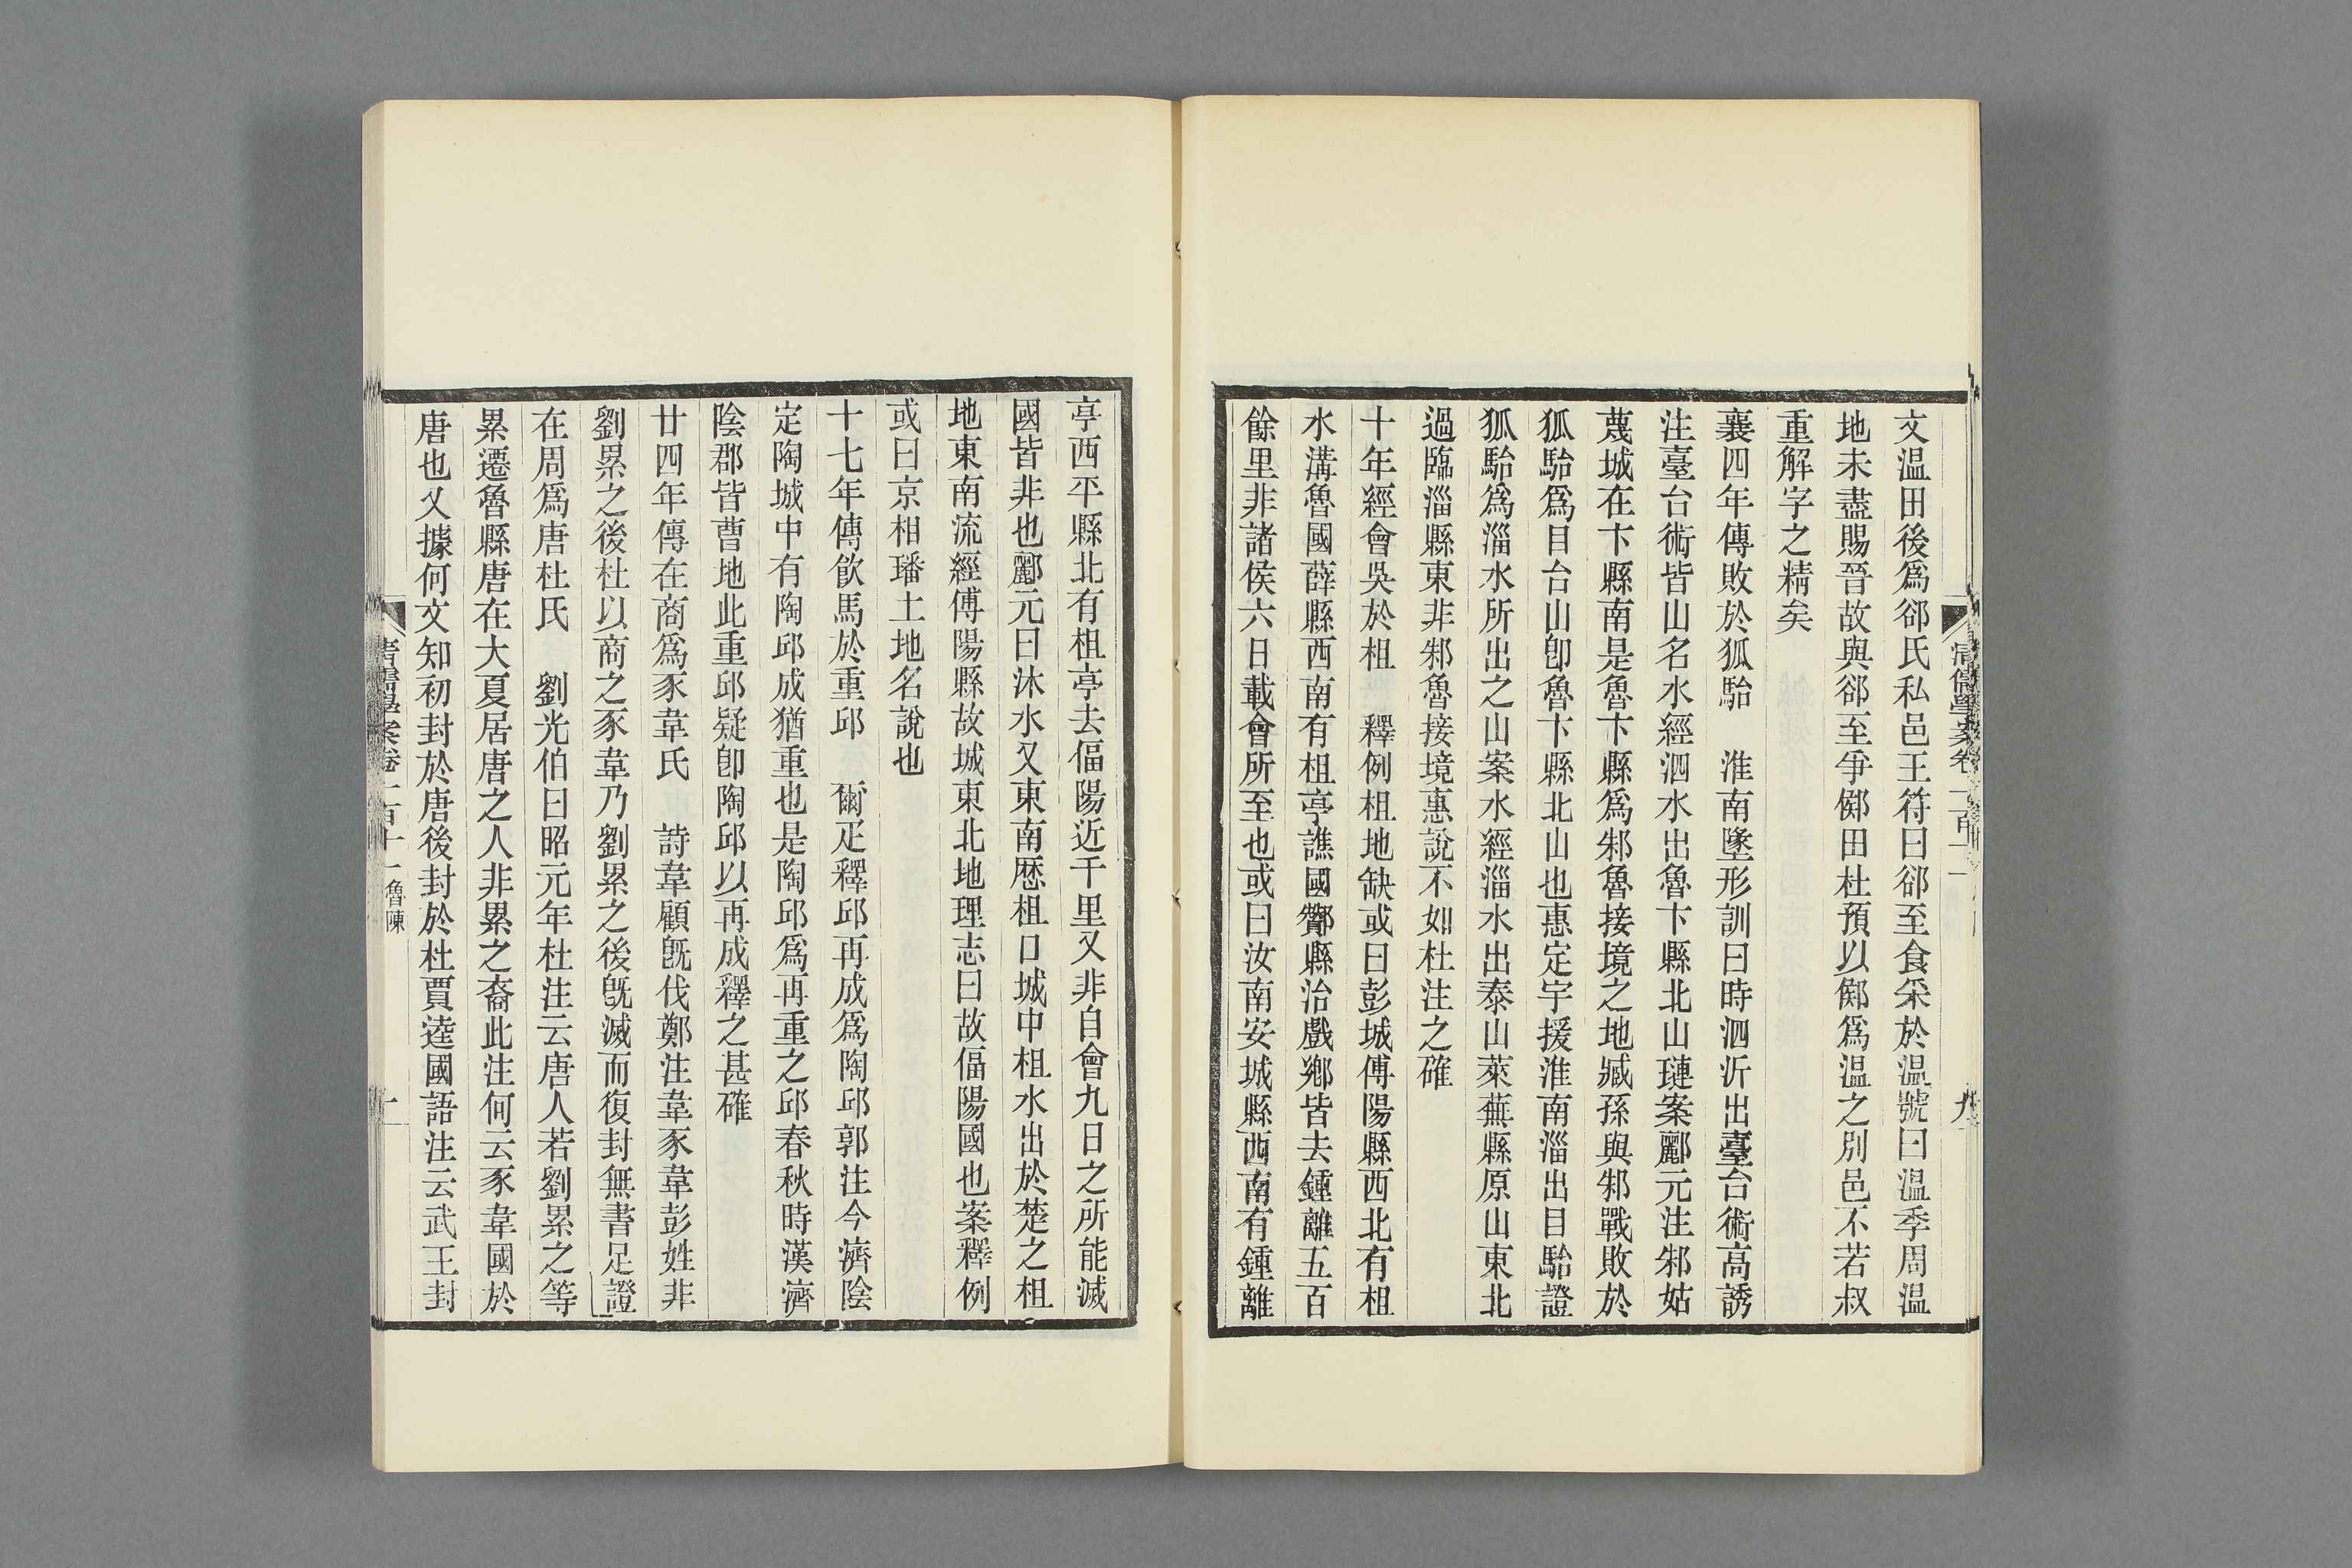 文温田後爲郤氏私邑王符曰郤至食采於温號曰温季周温
地未盡賜晉故與郤至爭鄇田杜預以鄇爲温之別邑不若叔
重解字之精矣
襄四年傳敗於狐駘　淮南墜形訓曰時泗沂出臺台術高誘
注臺台術皆山名水經泗水出魯卞縣北山璉案酈元注邾姑
蔑城在卞縣南是魯卞縣爲邾魯接境之地臧孫與邾戰敗於
狐駘爲目台山卽魯卞縣北山也惠定宇援淮南淄出目駘證
狐駘爲淄水所出之山案水經淄水出泰山萊蕪縣原山東北
過臨淄縣東非邾魯接境惠說不如杜注之確
十年經會吳於柤　釋例柤地缺或曰彭城傅陽縣西北有柤
水溝魯國薛縣西南有柤亭譙國酇縣治戲鄕皆去鍾離五百
餘里非諸侯六日載會所至也或曰汝南安城縣西南有鍾離
清儒學案卷一百十一
九
亭西平縣北有柤亭去偪陽近千里又非自會九日之所能滅
國皆非也酈元曰沐水又東南歷柤口城中柤水出於楚之柤
地東南流經傅陽縣故城東北地理志曰故偪陽國也案釋例
或曰京相璠土地名說也
十七年傳飲馬於重邱　爾疋釋邱再成爲陶邱郭注今濟陰
定陶城中有陶邱成猶重也是陶邱爲再重之邱春秋時漢濟
陰郡皆曹地此重邱疑卽陶邱以再成釋之甚確
廿四年傳在商爲豕韋氏　詩韋顧旣伐鄭注韋豕韋彭姓非
劉累之後杜以商之豕韋乃劉累之後旣滅而復封無書足證
在周爲唐杜氏　劉光伯曰昭元年杜注云唐人若劉累之等
累遷魯縣唐在大夏居唐之人非累之裔此注何云豕韋國於
唐也又據何文知初封於唐後封於杜賈逵國語注云武王封
清儒學案卷一百十一　魯陳